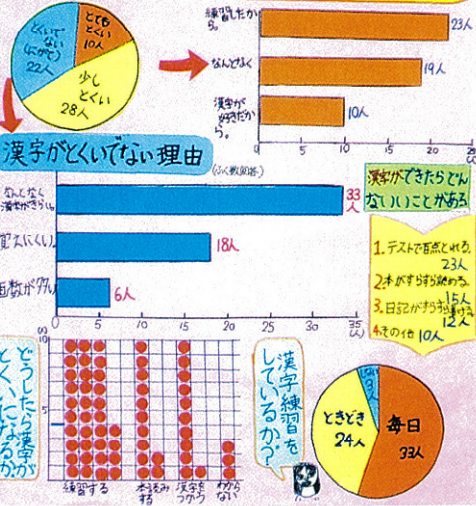 とても
とくい
10人
とくいで
ない
(にがて)
22人
少し
とくい
28人
練習したか
ら。
23人
なんとなく
19人
漢字が
好きだか
ら。
10人
0
5
10
15
20
25
(人)
漢字がとくいでない理由
(ふく数回答)
なんとなく
漢字がきらい。
33
人
覚えにくい。
18人
画数が多い。
6人
0
5
10
15
20
25
30
35
(人)
漢字ができたらどん
ないいことがある
1.テストで百点とれる。
23人
2.本がすらすら読める。
15人
3.日記がすらすら書ける。
12人
4.その他 10人
どうしたら漢字が
とくいになるか
10
5
練習する
本を読み
する
漢字を
つかう
わから
ない
漢字練習を
しているか?
ない
3人
ときどき
24人
毎日
33人